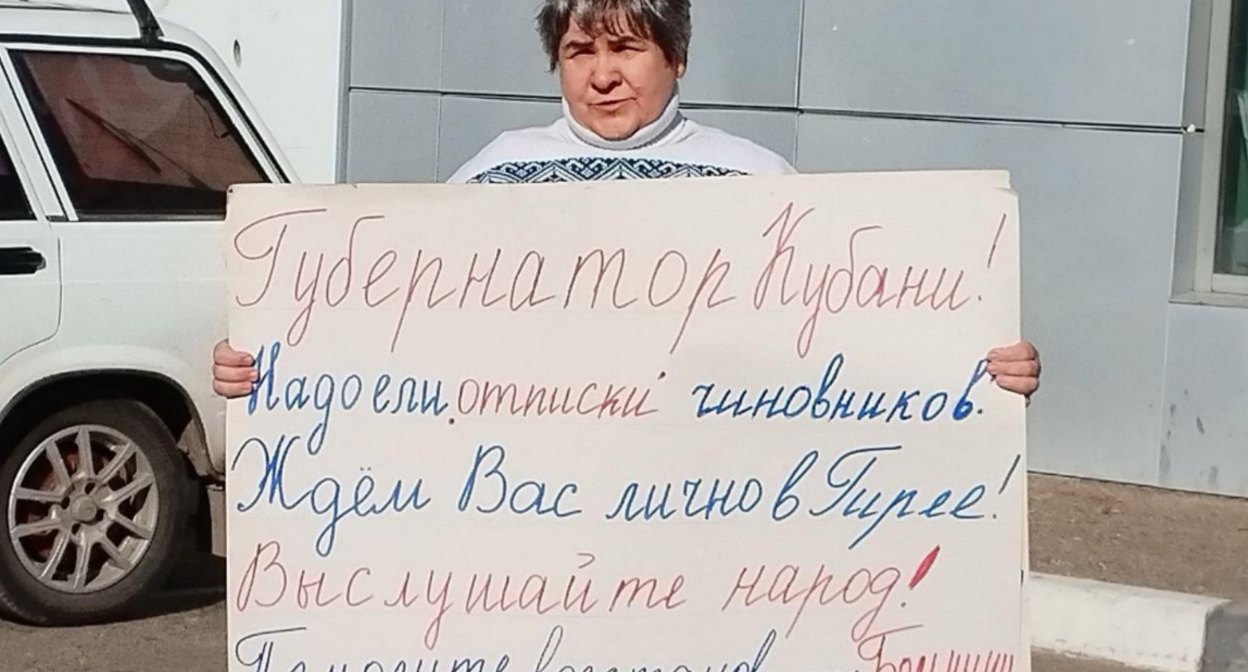 Губернатор Кубани!
Надоели отписки чиновников.
Ждём Вас лично в Гирее!
Выслушайте народ!
Помогите